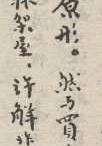 原形。然与買
架屋、許解